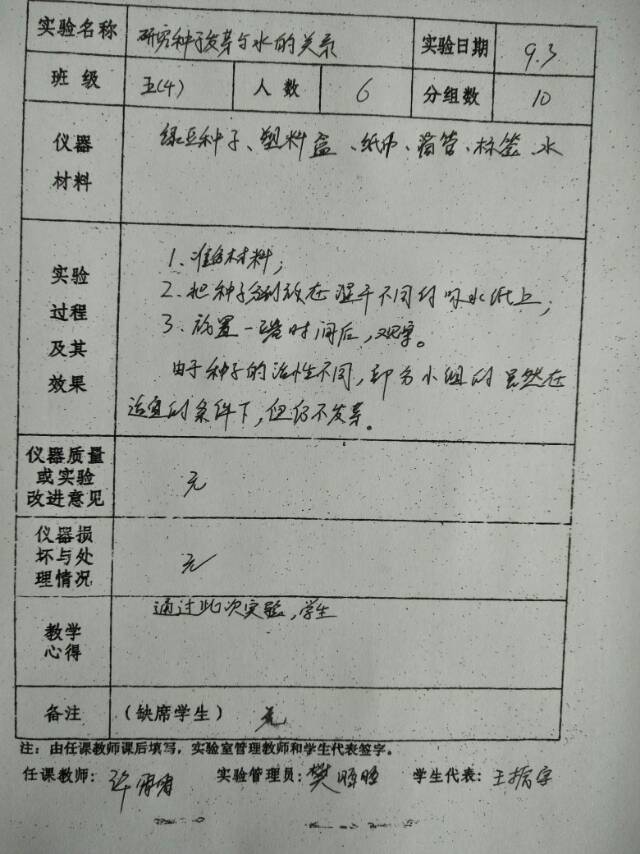 实验名称 研究种子发芽与水的关系 实验日期 9.3
班 级 五(4) 人 数 6 分组数 10
仪器
材料
绿豆种子、塑料盒、纸巾、滴管、标签、水
实验
过程
及其
效果
1. 准备材料;
2. 把种子分别放在湿干不同的吸水纸上;
3. 放置一段时间后,观察。
由于种子的活性不同,部分小组的虽然在
适宜的条件下,但仍不发芽。
仪器质量
或实验
改进意见
无
仪器损
坏与处
理情况
无
教学
心得
通过此次实验,学生
备注 (缺席学生) 无
注:由任课教师课后填写,实验室管理教师和学生代表签字。
任课教师: 许 实验管理员: 樊 学生代表: 王